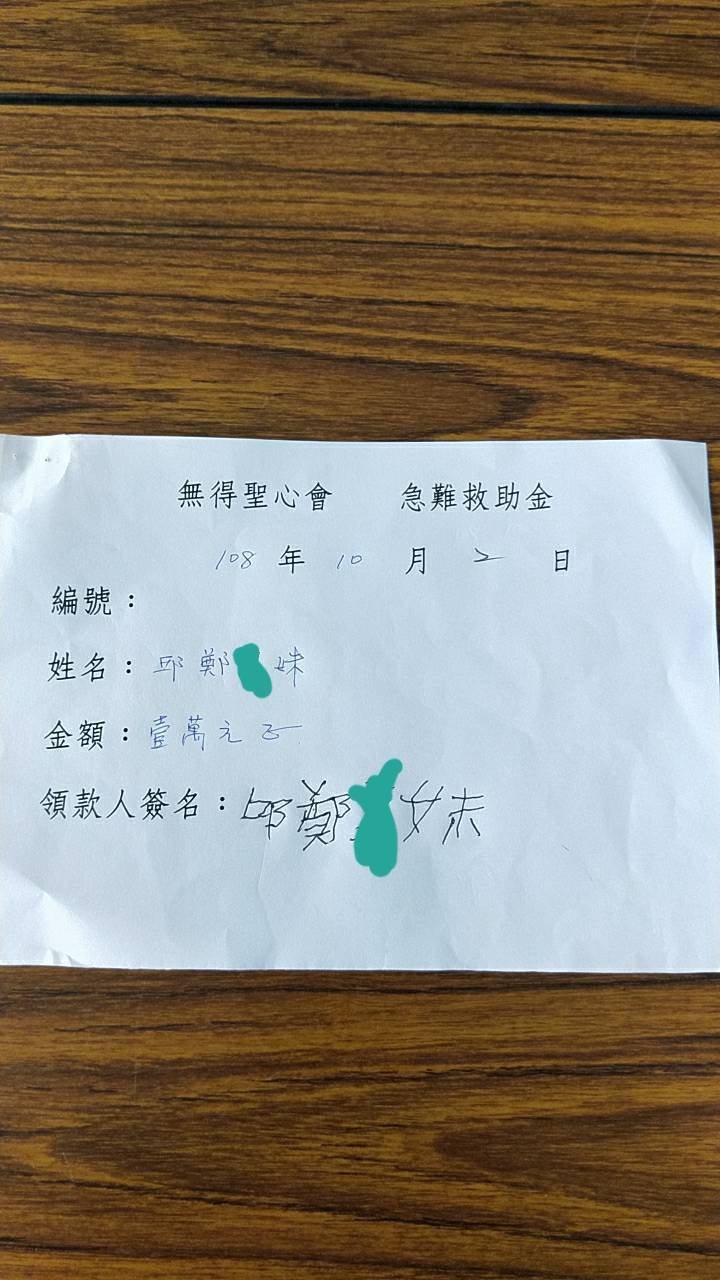 無得聖心會 急難救助金
108 年 10 月 2 日
編號：
姓名：邱鄭 妹
金額：壹萬元正
領款人簽名：邱鄭 妹